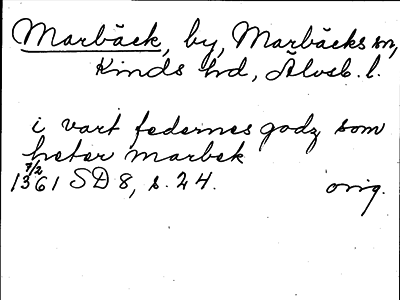 Marbäck, by, Marbäcks sn,
Kinds hd, Älvsb. l.
i vart federnes godz som
heter marbek
7/2
1361 SD 8, s. 24. orig.